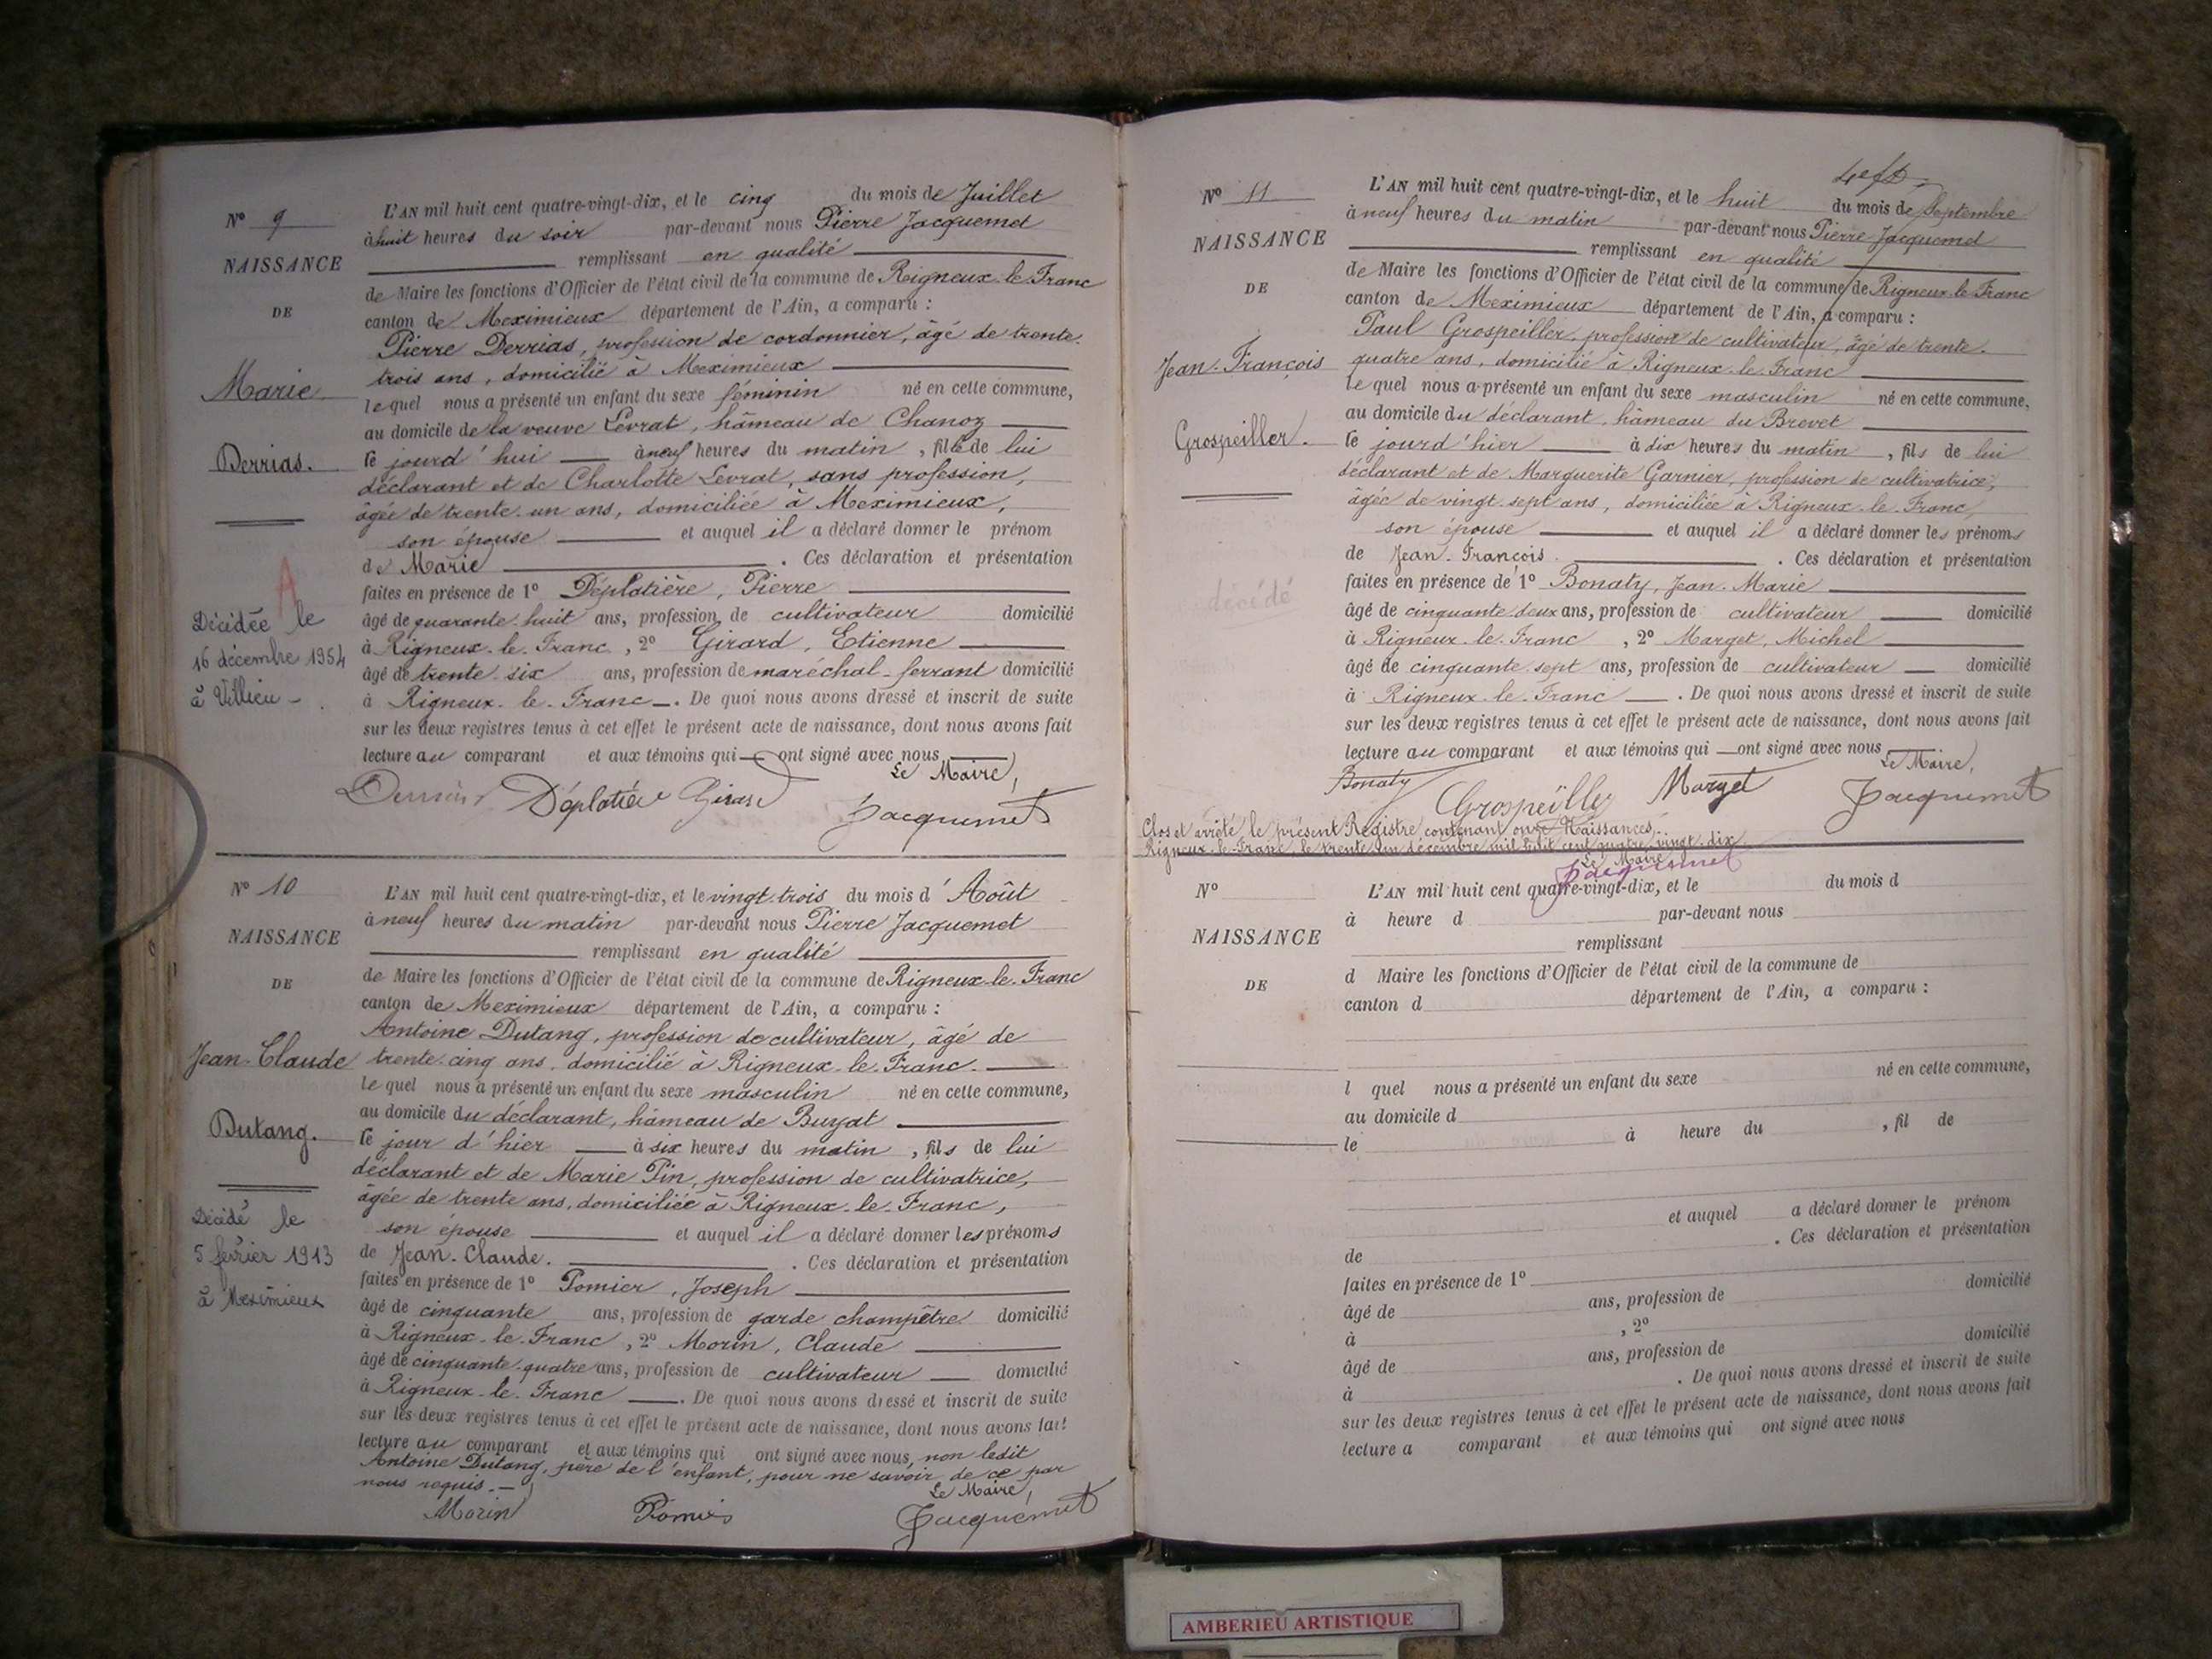 Nº 9
NAISSANCE
DE
Marie
Derrias.
Décédée le
16 décembre 1954
à Villieu -
A
L'AN mil huit cent quatre-vingt-dix, et le cinq du mois de Juillet
à huit heures du soir par-devant nous Pierre Jacquemet
remplissant en qualité
de Maire les fonctions d'Officier de l'état civil de la commune de Rigneux-le-Franc
canton de Meximieux département de l'Ain, a comparu :
Pierre Derrias, profession de cordonnier, âgé de trente-
trois ans, domicilié à Meximieux
lequel nous a présenté un enfant du sexe féminin né en cette commune,
au domicile de la veuve Levrat, hâmeau de Chanoz
le jourd'hui à neuf heures du matin, fille de lui
déclarant et de Charlotte Levrat, sans profession,
âgée de trente-un ans, domiciliée à Meximieux,
son épouse et auquel il a déclaré donner le prénom
de Marie . Ces déclaration et présentation
faites en présence de 1º Déplatière, Pierre
âgé de quarante-huit ans, profession de cultivateur domicilié
à Rigneux-le-Franc, 2º Girard, Etienne
âgé de trente-six ans, profession de maréchal-ferrant domicilié
à Rigneux-le-Franc. De quoi nous avons dressé et inscrit de suite
sur les deux registres tenus à cet effet le présent acte de naissance, dont nous avons fait
lecture au comparant et aux témoins qui ont signé avec nous
Le Maire,
Derrias Déplatière Girard Jacquemet
Nº 10
NAISSANCE
DE
Jean-Claude
Dutang.
Décédé le
5 février 1913
à Meximieux
L'AN mil huit cent quatre-vingt-dix, et le vingt-trois du mois d'Août
à neuf heures du matin par-devant nous Pierre Jacquemet
remplissant en qualité
de Maire les fonctions d'Officier de l'état civil de la commune de Rigneux-le-Franc
canton de Meximieux département de l'Ain, a comparu :
Antoine Dutang, profession de cultivateur, âgé de
trente-cinq ans, domicilié à Rigneux-le-Franc.
lequel nous a présenté un enfant du sexe masculin né en cette commune,
au domicile du déclarant, hâmeau de Buyat
le jour d'hier à six heures du matin, fils de lui
déclarant et de Marie Pin, profession de cultivatrice,
âgée de trente ans, domiciliée à Rigneux-le-Franc,
son épouse et auquel il a déclaré donner les prénoms
de Jean-Claude. . Ces déclaration et présentation
faites en présence de 1º Pomier, Joseph
âgé de cinquante ans, profession de garde champêtre domicilié
à Rigneux-le-Franc, 2º Morin, Claude
âgé de cinquante-quatre ans, profession de cultivateur domicilié
à Rigneux-le-Franc. De quoi nous avons dressé et inscrit de suite
sur les deux registres tenus à cet effet le présent acte de naissance, dont nous avons fait
lecture au comparant et aux témoins qui ont signé avec nous, non ledit
Antoine Dutang, père de l'enfant, pour ne savoir de ce par
nous requis.-
Le Maire,
Morin Pomier Jacquemet
Nº 11
NAISSANCE
DE
Jean-François
Grospeiller.
décédé
L'AN mil huit cent quatre-vingt-dix, et le huit du mois de Septembre
à neuf heures du matin par-devant nous Pierre Jacquemet
remplissant en qualité
de Maire les fonctions d'Officier de l'état civil de la commune de Rigneux-le-Franc
canton de Meximieux département de l'Ain, a comparu :
Paul Grospeiller, profession de cultivateur, âgé de trente-
quatre ans, domicilié à Rigneux-le-Franc
lequel nous a présenté un enfant du sexe masculin né en cette commune,
au domicile du déclarant, hâmeau du Brevet
le jourd'hier à dix heures du matin, fils de lui
déclarant et de Marguerite Garnier, profession de cultivatrice,
âgée de vingt-sept ans, domiciliée à Rigneux-le-Franc,
son épouse et auquel il a déclaré donner les prénoms
de Jean-François. . Ces déclaration et présentation
faites en présence de 1º Bonaty, Jean-Marie
âgé de cinquante-deux ans, profession de cultivateur domicilié
à Rigneux-le-Franc, 2º Marget, Michel
âgé de cinquante-sept ans, profession de cultivateur domicilié
à Rigneux-le-Franc. De quoi nous avons dressé et inscrit de suite
sur les deux registres tenus à cet effet le présent acte de naissance, dont nous avons fait
lecture au comparant et aux témoins qui ont signé avec nous
Le Maire,
Bonaty Grospeiller Marget Jacquemet
Clos et arrêté le présent Registre contenant onze Naissances
Rigneux-le-Franc, le trente-un décembre mil huit cent quatre-vingt-dix
Le Maire
Jacquemet
Nº
NAISSANCE
DE
L'AN mil huit cent quatre-vingt-dix, et le du mois d
à heure d par-devant nous
remplissant
d Maire les fonctions d'Officier de l'état civil de la commune de
canton d département de l'Ain, a comparu :
l quel nous a présenté un enfant du sexe né en cette commune,
au domicile d
le à heure du , fil de
et auquel a déclaré donner le prénom
de . Ces déclaration et présentation
faites en présence de 1º
âgé de ans, profession de domicilié
à , 2º
âgé de ans, profession de domicilié
à . De quoi nous avons dressé et inscrit de suite
sur les deux registres tenus à cet effet le présent acte de naissance, dont nous avons fait
lecture a comparant et aux témoins qui ont signé avec nous
AMBERIEU ARTISTIQUE